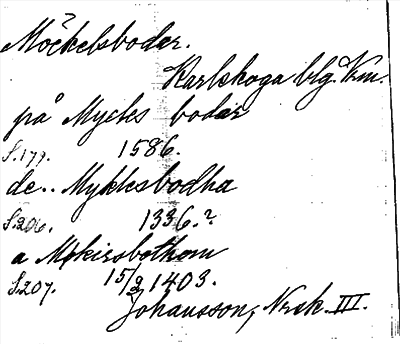 ?
Möckelsboder.
Karlskoga blg. Vrm.
på Myckes bodar
S.177. 1586.
de.. Mykklesbodha
S.206. 1336.?
a Mökirsbothom
S.207. 15/2 1403.
Johansson, Nrsk. III.